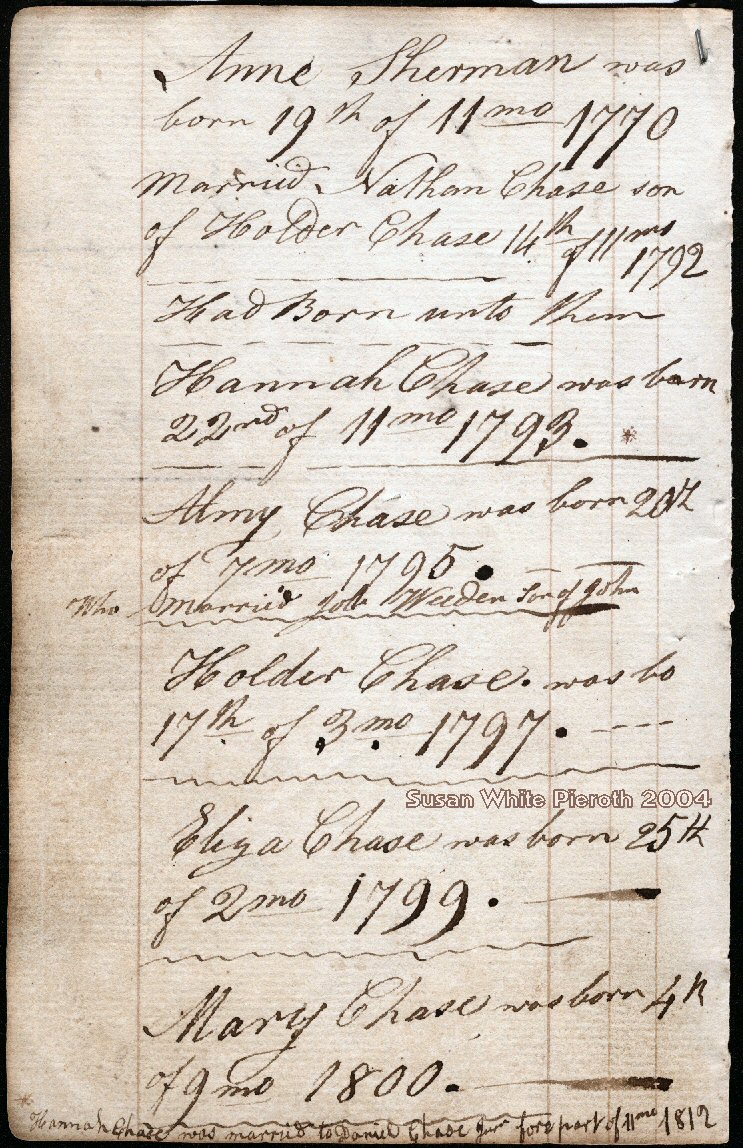 Anne Sherman was
born 19th of 11mo 1770
Married Nathan Chase son
of Holder Chase 14th of 11mo
1792
Had Born unto them
Hannah Chase was born
22nd of 11mo 1793. *
Almy Chase was born 20th
of 7mo 1795.
Who married Job Weeden son of John
Holder Chase. was bo
17th of 3mo 1797.
Susan White Pieroth 2004
Eliza Chase was born 25th
of 2mo 1799.
Mary Chase was born 4th
of 9mo 1800.
* Hannah Chase was married to Daniel Chase Junr fore part of 11mo 1812